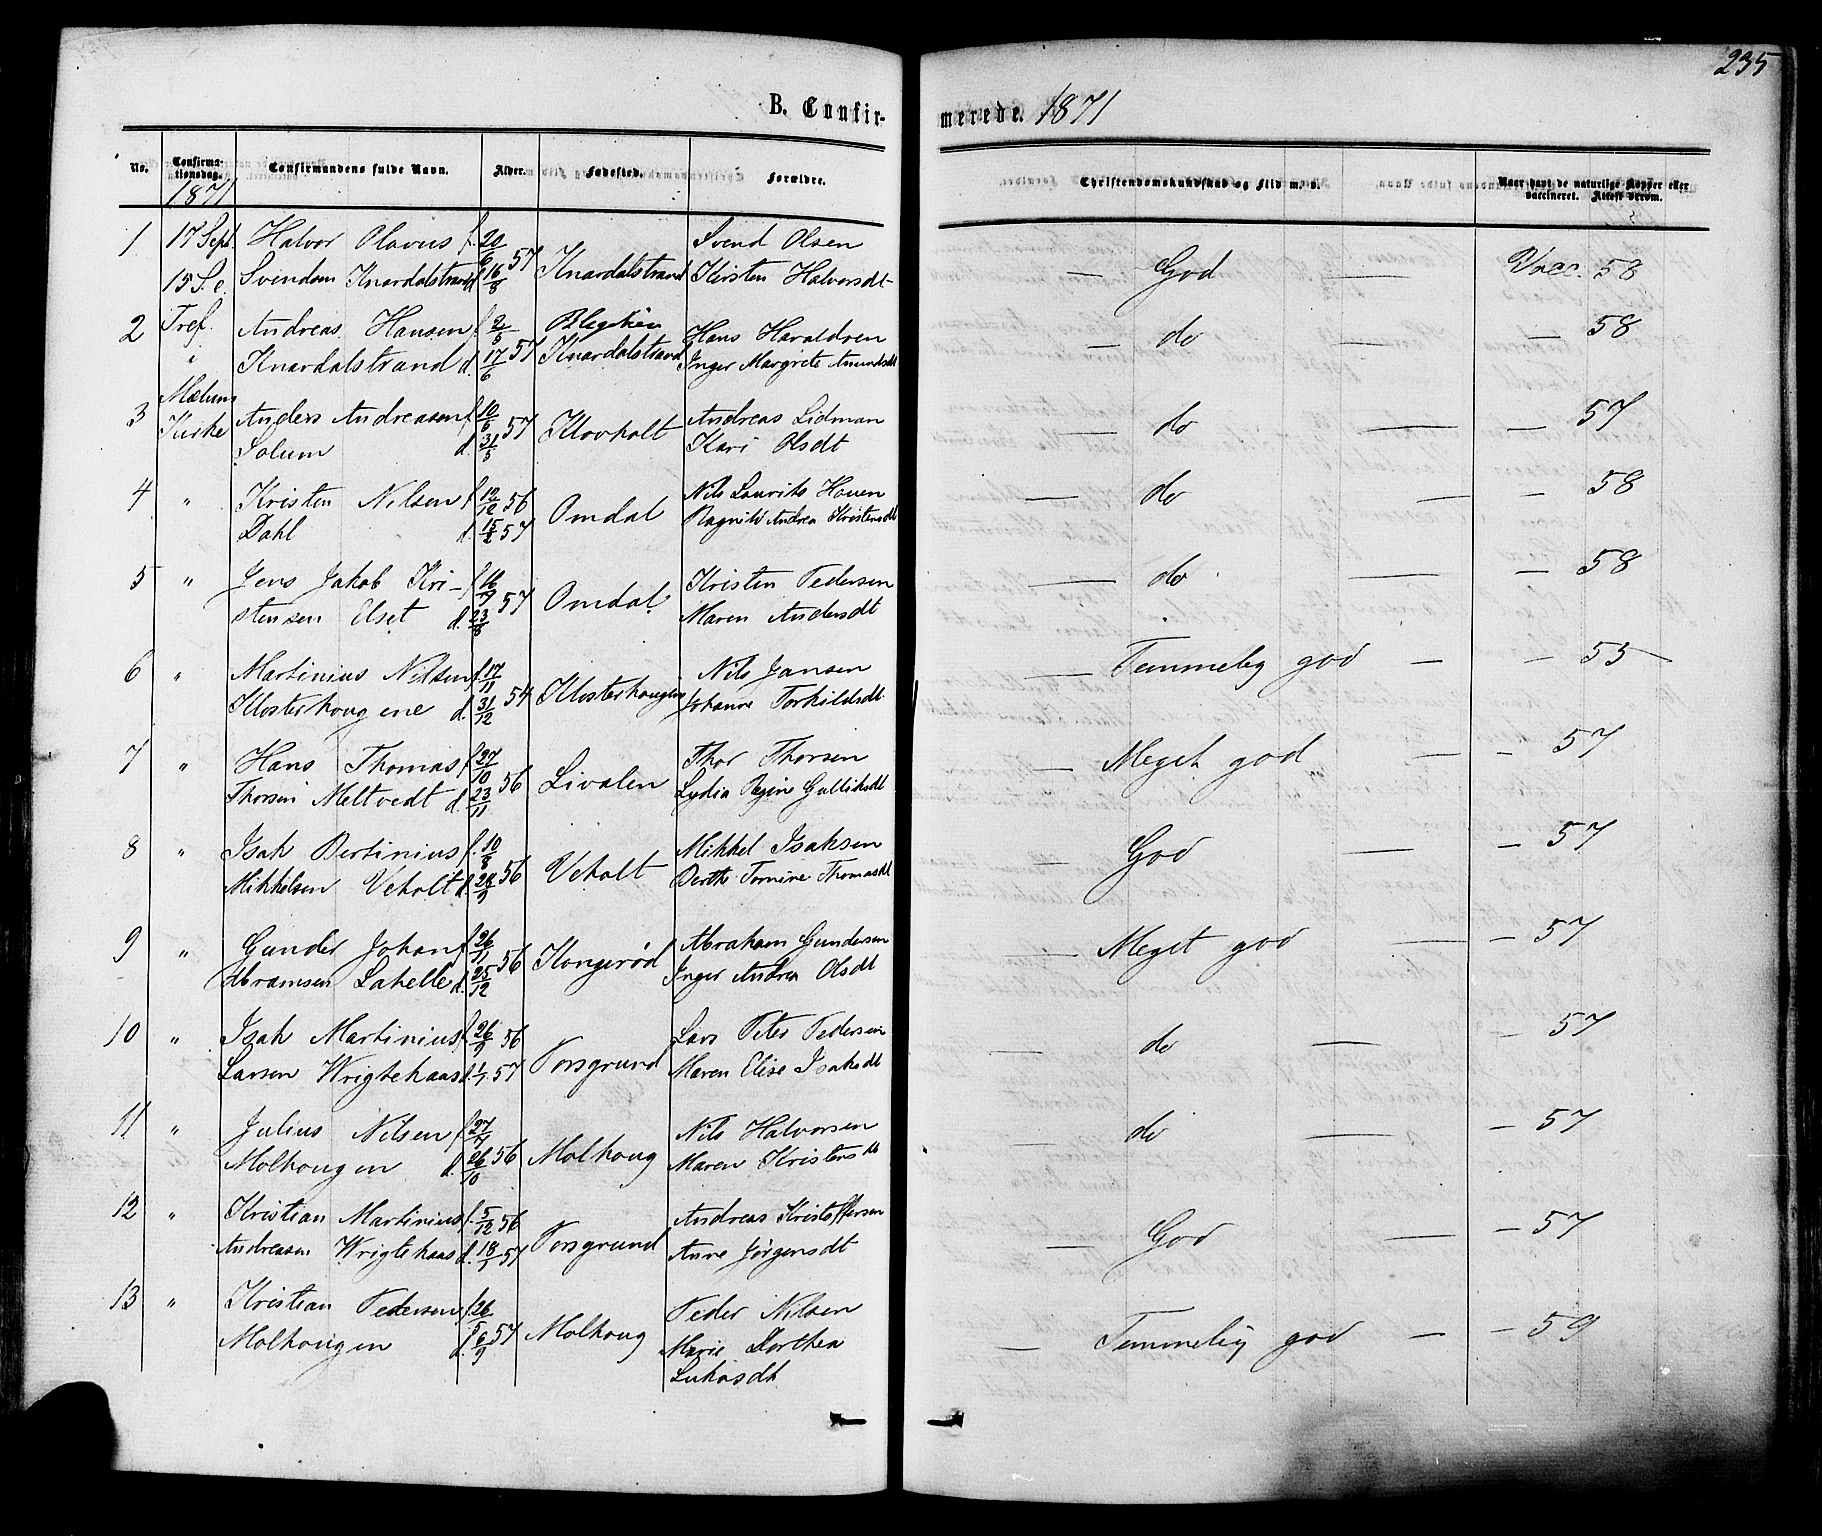 235
B. Confirmerede. 1871
No. Confirmationsdag. Confirmandens fulde Navn. Alder. Fødested. Forældre. Christendomskundskab og Flid m. v. Naar havt de naturlige Kopper eller vaccineret. Attest derom.
1871
1 17 Sept. Halvor Olavus f. 20/6 57 Knardalstrand Svend Olsen — God — Vacc. 58
15 S. e. Svendsen Knardalstrand d. 16/8 Kirsten Halvorsdt
2 Tref. Andreas Hansen f. 2/5 57 Hans Haraldsen — do — 58
" Knardalstrand d. 17/6 Knardalstrand Inger Margrete Amundsdt
Mælum
3 Kirke Anders Andreasen f. 10/6 57 Klovholt Andreas Lidman — do — — 57
Solum d. 31/5 Kari Olsdt
4 " Kristen Nilsen f. 12/12 56 Omdal Nils Laurits Hauen — do — — 58
Dahl d. 15/2 57 Ragnild Andrea Kristensdt
5 " Jens Jakob Kri- f. 16/7 57 Omdal Kristen Pedersen — do — — 58
stensen Elset d. 23/8 Maren Andersdt
6 " Martinius Nilsen f. 17/11 54 Klosterhougen Nils Jansen — Temmelig god — — 55
Klosterhougene d. 31/12 Johanne Torkildsdt
7 " Hans Thomas f. 27/10 56 Livalen Thor Thorsen — Meget god — — 57
Thorsen Meltvedt d. 23/11 Lydia Regine Gulliksdt
8 " Isak Bertinius f. 10/8 56 Veholt Mikkel Isaksen — God — — 57
Mikkelsen Veholt d. 28/9 Berthe Tomine Thomasdt
9 " Gunder Johan f. 26/11 56 Kongerød Abraham Gundersen — Meget god — — 57
Abramsen Lakelle d. 25/12 Inger Andrea Olsdt
10 " Isak Martinius f. 26/9 56 Porsgrund Lars Peter Pedersen — do — — 57
Larsen Wrigtehaas d. 1/1 57 Maren Elise Isaksdt
11 " Julius Nilsen f. 27/7 56 Molhoug Nils Halvorsen — do — — 57
Molhougen d. 26/10 Maren Kristensdt
12 " Kristian Martinius f. 5/12 56 Porsgrund Andreas Kristoffersen — God — — 57
Andreasen Wrigtehaas d. 18/1 57 Anne Jørgensdt
13 " Kristian Pedersen f. 26/5 57 Molhoug Peder Nilsen — Temmelig god — — 59
Molhougen d. 6/9 Marie Dorthea
Lukasdt